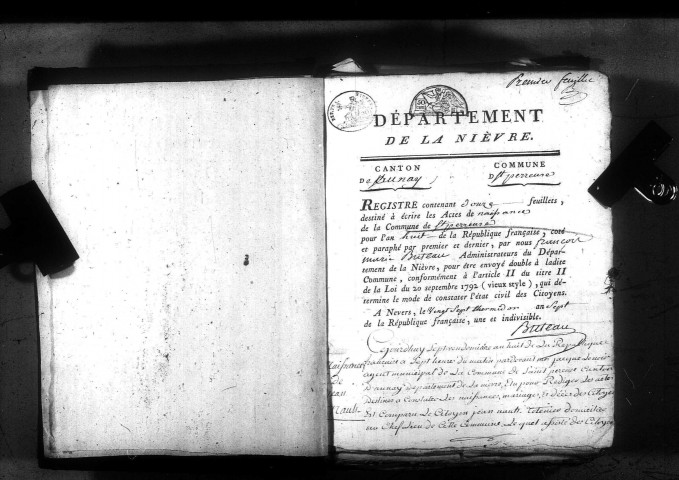 Premier feuillet
DÉPARTEMENT
DE LA NIÈVRE.
CANTON
De Aunay
COMMUNE
D St perreuse
REGISTRE contenant douze feuillets,
destiné à écrire les Actes de naissance
de la Commune de St perreuse
pour l'an huit de la République française, coté
et paraphé par premier et dernier, par nous françois
marie Buteau Administrateurs du Dépar-
tement de la Nièvre, pour être envoyé double à ladite
Commune, conformément à l'article II du titre II
de la Loi du 20 septembre 1792 (vieux style), qui dé-
termine le mode de constater l'état civil des Citoyens.
A Nevers, le Vingt Sept thermidor an Sept
de la République française, une et indivisible.
Buteau
Naissance
de
jean
nault
Cejourdhuy Sept vendemiaire an huit de La Republique
française a Sept heure du matin pardevant moi jacque
agent municipal de La Commune de Saint pereuse Canton
Daunay Departement de La nievre, Elu pour Rediger Les actes
destinés a Constater Les naissances, mariage, et décès des Citoyens
Est Comparu Le Citoyen jean nault
au Chef Lieu de Cette Commune, Le quel assisté des Citoyens